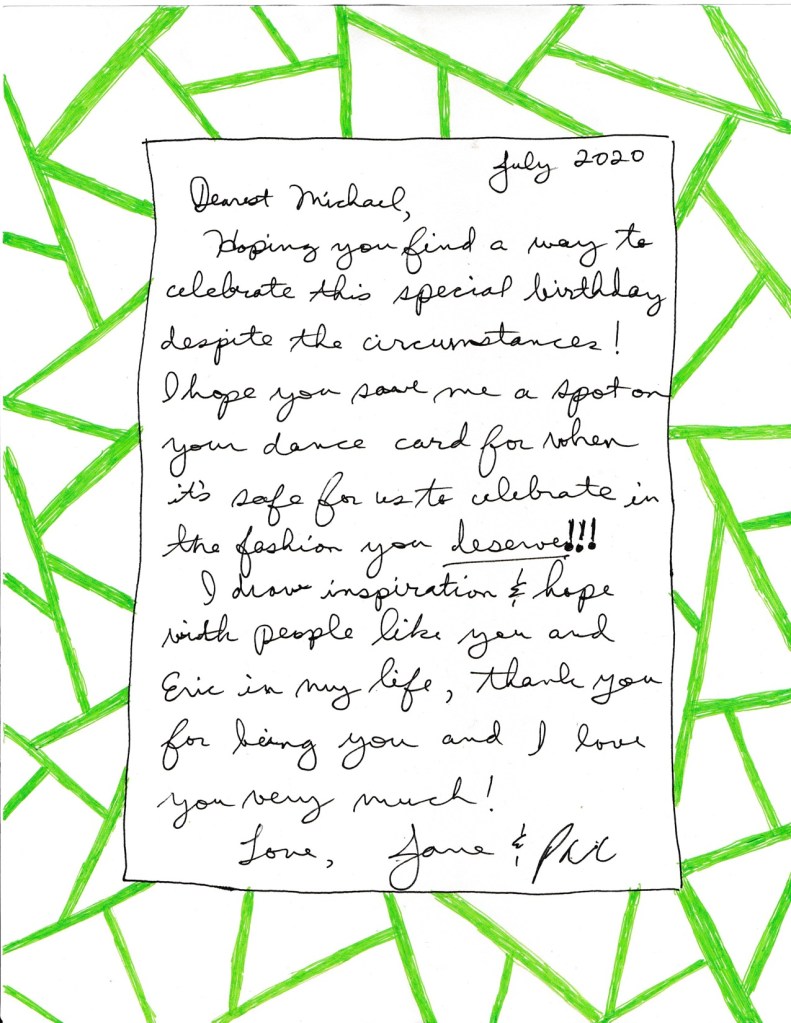 July 2020
Dearest Michael,
Hoping you find a way to
celebrate this special birthday
despite the circumstances!
I hope you save me a spot on
your dance card for when
it's safe for us to celebrate in
the fashion you deserve!!!
I draw inspiration & hope
with people like you and
Eric in my life, thank you
for being you and I love
you very much!
Love, Jane &